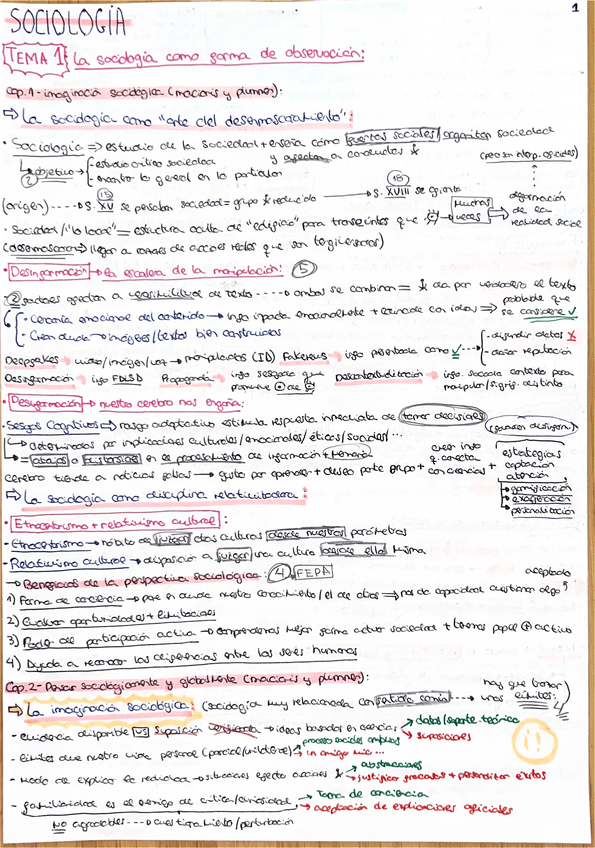 1
SOCIOLOGÍA
TEMA 1: La sociología como forma de observación:
Cap. 1 - imaginació sociológica (macionis y plumner):
⇒ La sociología como "arte del desenmascaramiento":
• Sociología ⇒ estudio de la sociedad + enseña cómo fuerzas sociales organizan sociedad
y afectan a conductas
② objetivo → - estudio crítico sociedad
- mostrar lo general en lo particular
(origen) ----→ S. XV se pensaba sociedad = grupo reducido → S. XVIII se giranta
muchas veces ⇒ deformación de la realidad social
• Sociedad/"lo local" = estructura oculta de "edificio" para transeúntes que
(desenmascarar → llegar a través de acciones reales que son tergiversadas)
• Desinformación → La escalera de la manipulación: ⑤
② factores afectan a verosimilitud de texto ----→ ambos se combinan = da por verdadero el texto
- Cercanía emocional del contenido → info impacta emocionalmente + coincide con ideas ⇒ probable que se considere ✓
- Crean duda → imágenes/textos bien construidos
- difundir datos X
- dañar reputación
Deepfakes → video/imagen/voz → manipulados (ID) Fakenews → info presentada como ✓
Desinformación → info FDLSD Propaganda → info sesgada que promueve Descontextualización → info. sacada contexto para manipular/signif. distinto
• Desinformación → nuestro cerebro nos engaña:
- Sesgos Cognitivos ⇒ rasgo adaptativo estimula respuesta inmediata de tomar decisiones (favorecen desinform.)
↳ determinados por implicaciones culturales/emocionales/éticas/sociales/...
↳ = atajos o distorsiones en el procesamiento de información + memoria
cerebro tiende a noticias falsas → gusto por aprender + deseo parte grupo + creer info q conecta con creencias + estrategias captación atención
→ gamificación
→ exageración
→ personalización
⇒ La sociología como disciplina relativizadora:
• Etnocentrismo + relativismo cultural:
- Etnocentrismo → hábito de juzgar otras culturas desde nuestros parámetros
- Relativismo cultural → disposición a juzgar una cultura desde ella misma
→ Beneficios de la perspectiva sociológica: ④ FEPA
1) Forma de conciencia → pone en duda nuestro conocimiento/el de otros ⇒ nos da capacidad cuestionar algo aceptado
2) Evaluar oportunidades + limitaciones
3) Poder de participación activa → comprendemos mejor forma actuar sociedad + tomas papel ⊕ activo
4) Ayuda a reconocer las diferencias entre los seres humanos
Cap. 2 - Pensar sociológicamente y globalmente (macionis y plumner):
⇒ La imaginación sociológica: (sociología muy relacionada con sentido común ---→ hay que tomar unos límites: 4
- evidencia disponible VS suposición verificada → ideas basadas en creencias → datos/soporte teórico
→ suposiciones
- límites que nuestra vida personal (parcial/unilateral) → proceso sociales amplios
→ un amigo mío ...
- modo de explicar la realidad → situaciones efecto acciones → abstracciones
→ justificar fracasos + personalizar éxitos
- familiaridad es el enemigo de crítica/curiosidad → Toma de conciencia
→ aceptación de explicaciones oficiales
NO agradables ---→ cuestionamiento/perturbación